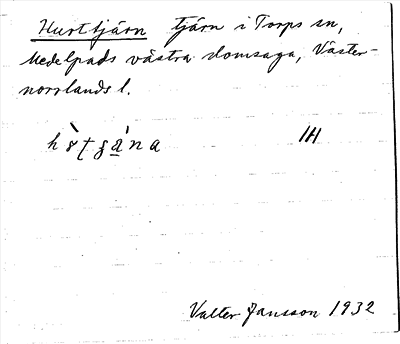 Hurttjärn tjärn i Torps sn,
Medelpads västra domsaga, Väster-
norrlands l.
IH
Valter Jansson 1932